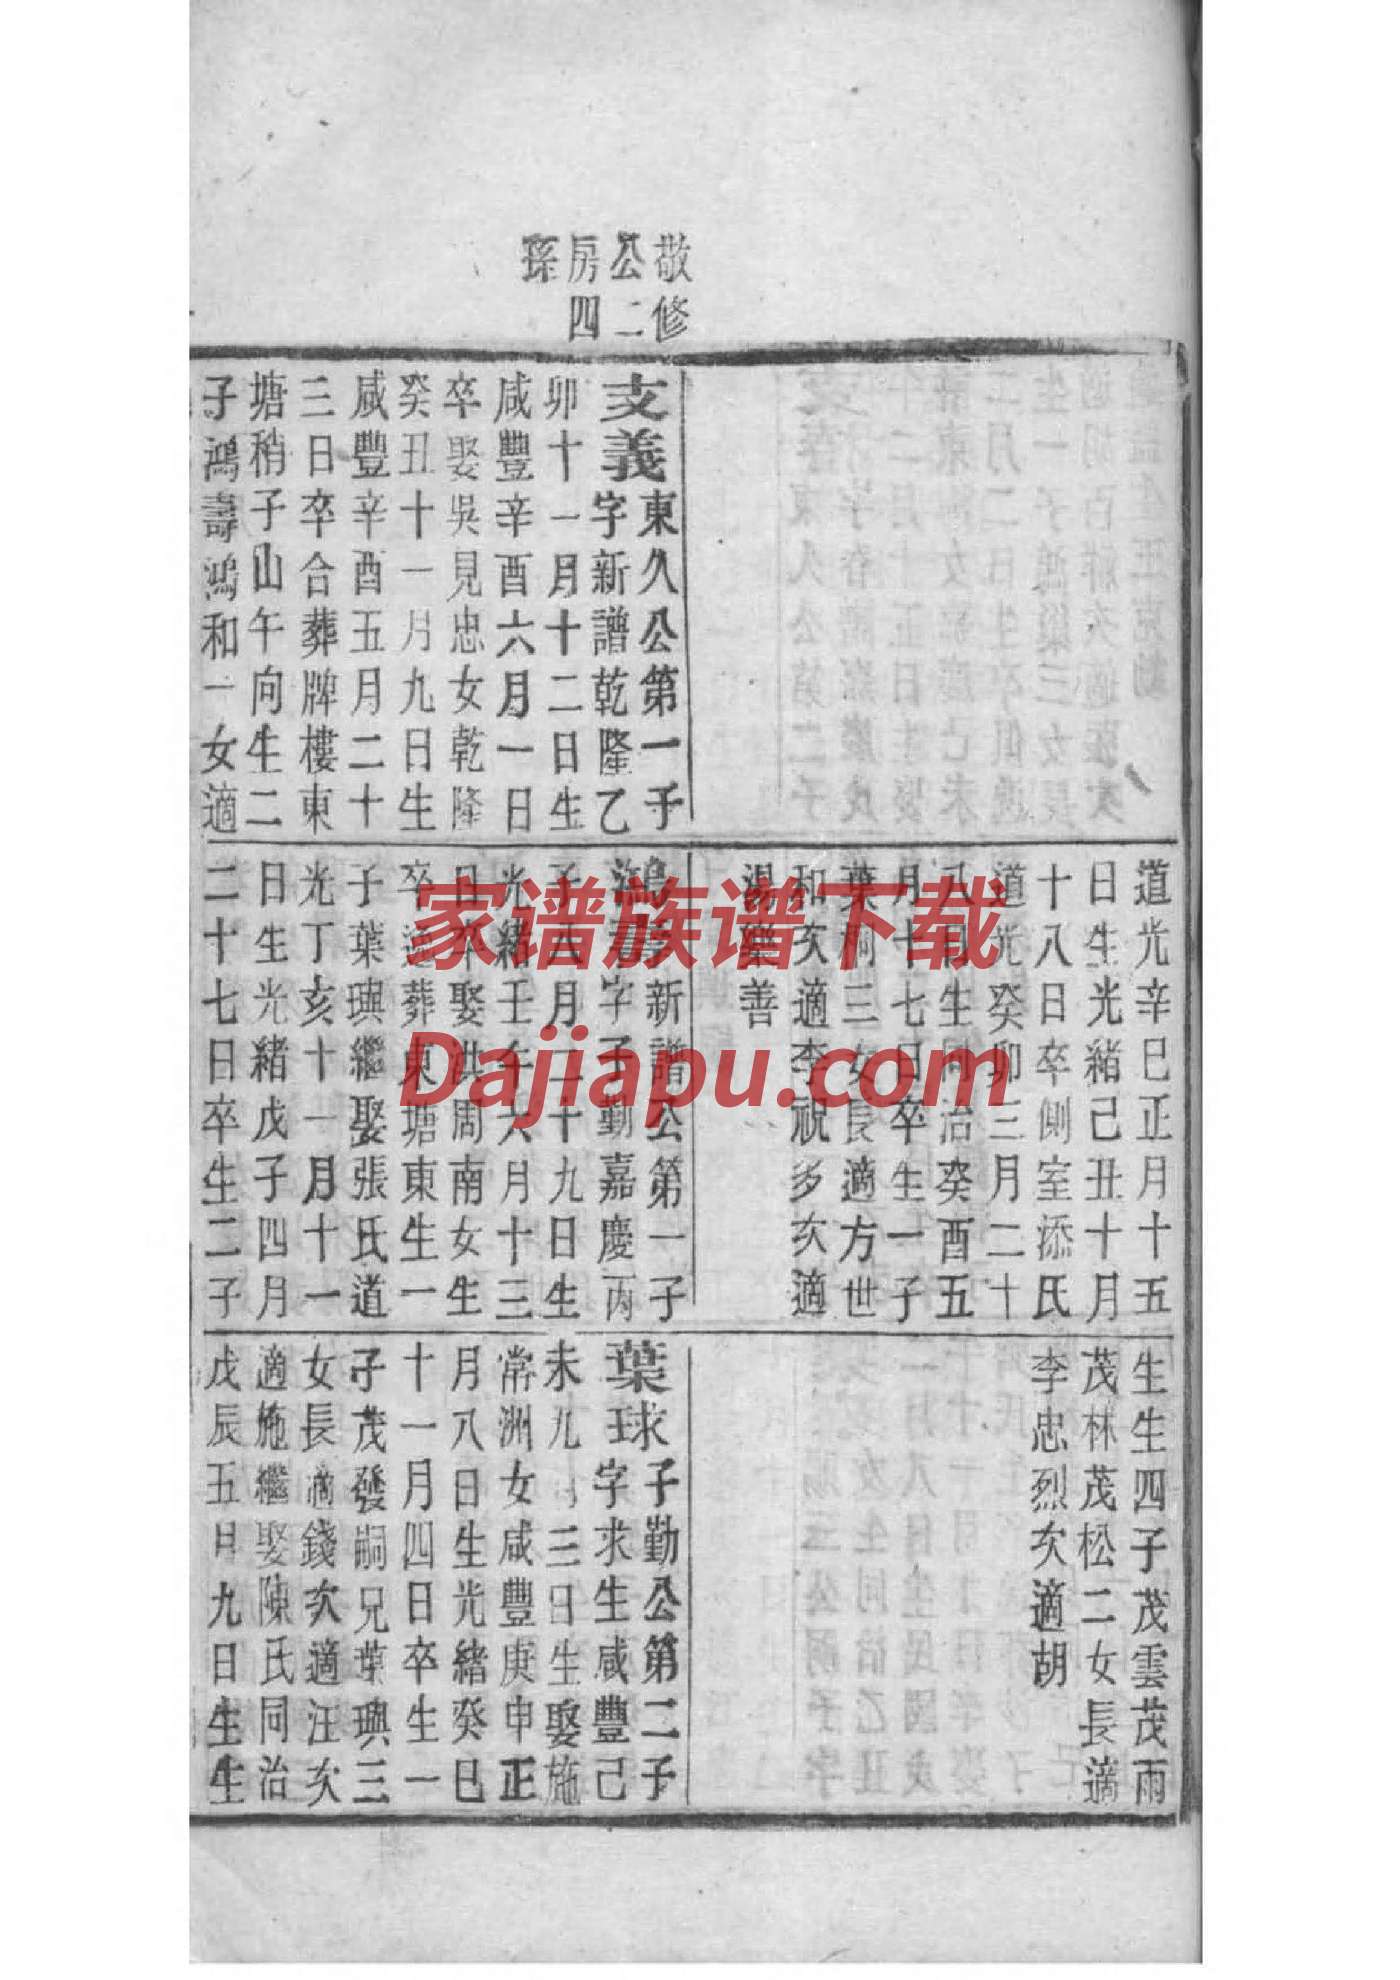 敬修
公二
房四
孫
支義東久公第一子
字新譜乾隆乙
卯十一月十二日生
咸豐辛酉六月一日
卒娶吳見忠女乾隆
癸丑十一月九日生
咸豐辛酉五月二十
三日卒合葬牌樓東
塘稍子山午向生二
子鴻壽鴻和一女適
道光辛巳正月十五
日生光緒己丑十月
十八日卒側室添氏
道光癸卯三月二十
八日生同治癸酉五
月十七日卒生一子
葉 三女長適方世
和次適李祝多次適
湯樂善
鴻壽新譜公第一子
字子勤嘉慶丙
子八月二十九日生
光緒壬午六月十三
日卒娶洪周南女生
卒 葬東塘東生一
子葉興繼娶張氏道
光丁亥十一月十一
日生光緒戊子四月
二十七日卒生二子
生生四子茂雲茂雨
茂林茂松二女長適
李忠烈次適胡
葉球子勤公第二子
字求生咸豐己
未九月三日生娶施
常洲女咸豐庚申正
月八日生光緒癸巳
十一月四日卒生一
子茂發嗣兄葉興三
女長適錢次適汪次
適施繼娶陳氏同治
戊辰五月九日生生
家谱族谱下载
Dajiapu.com